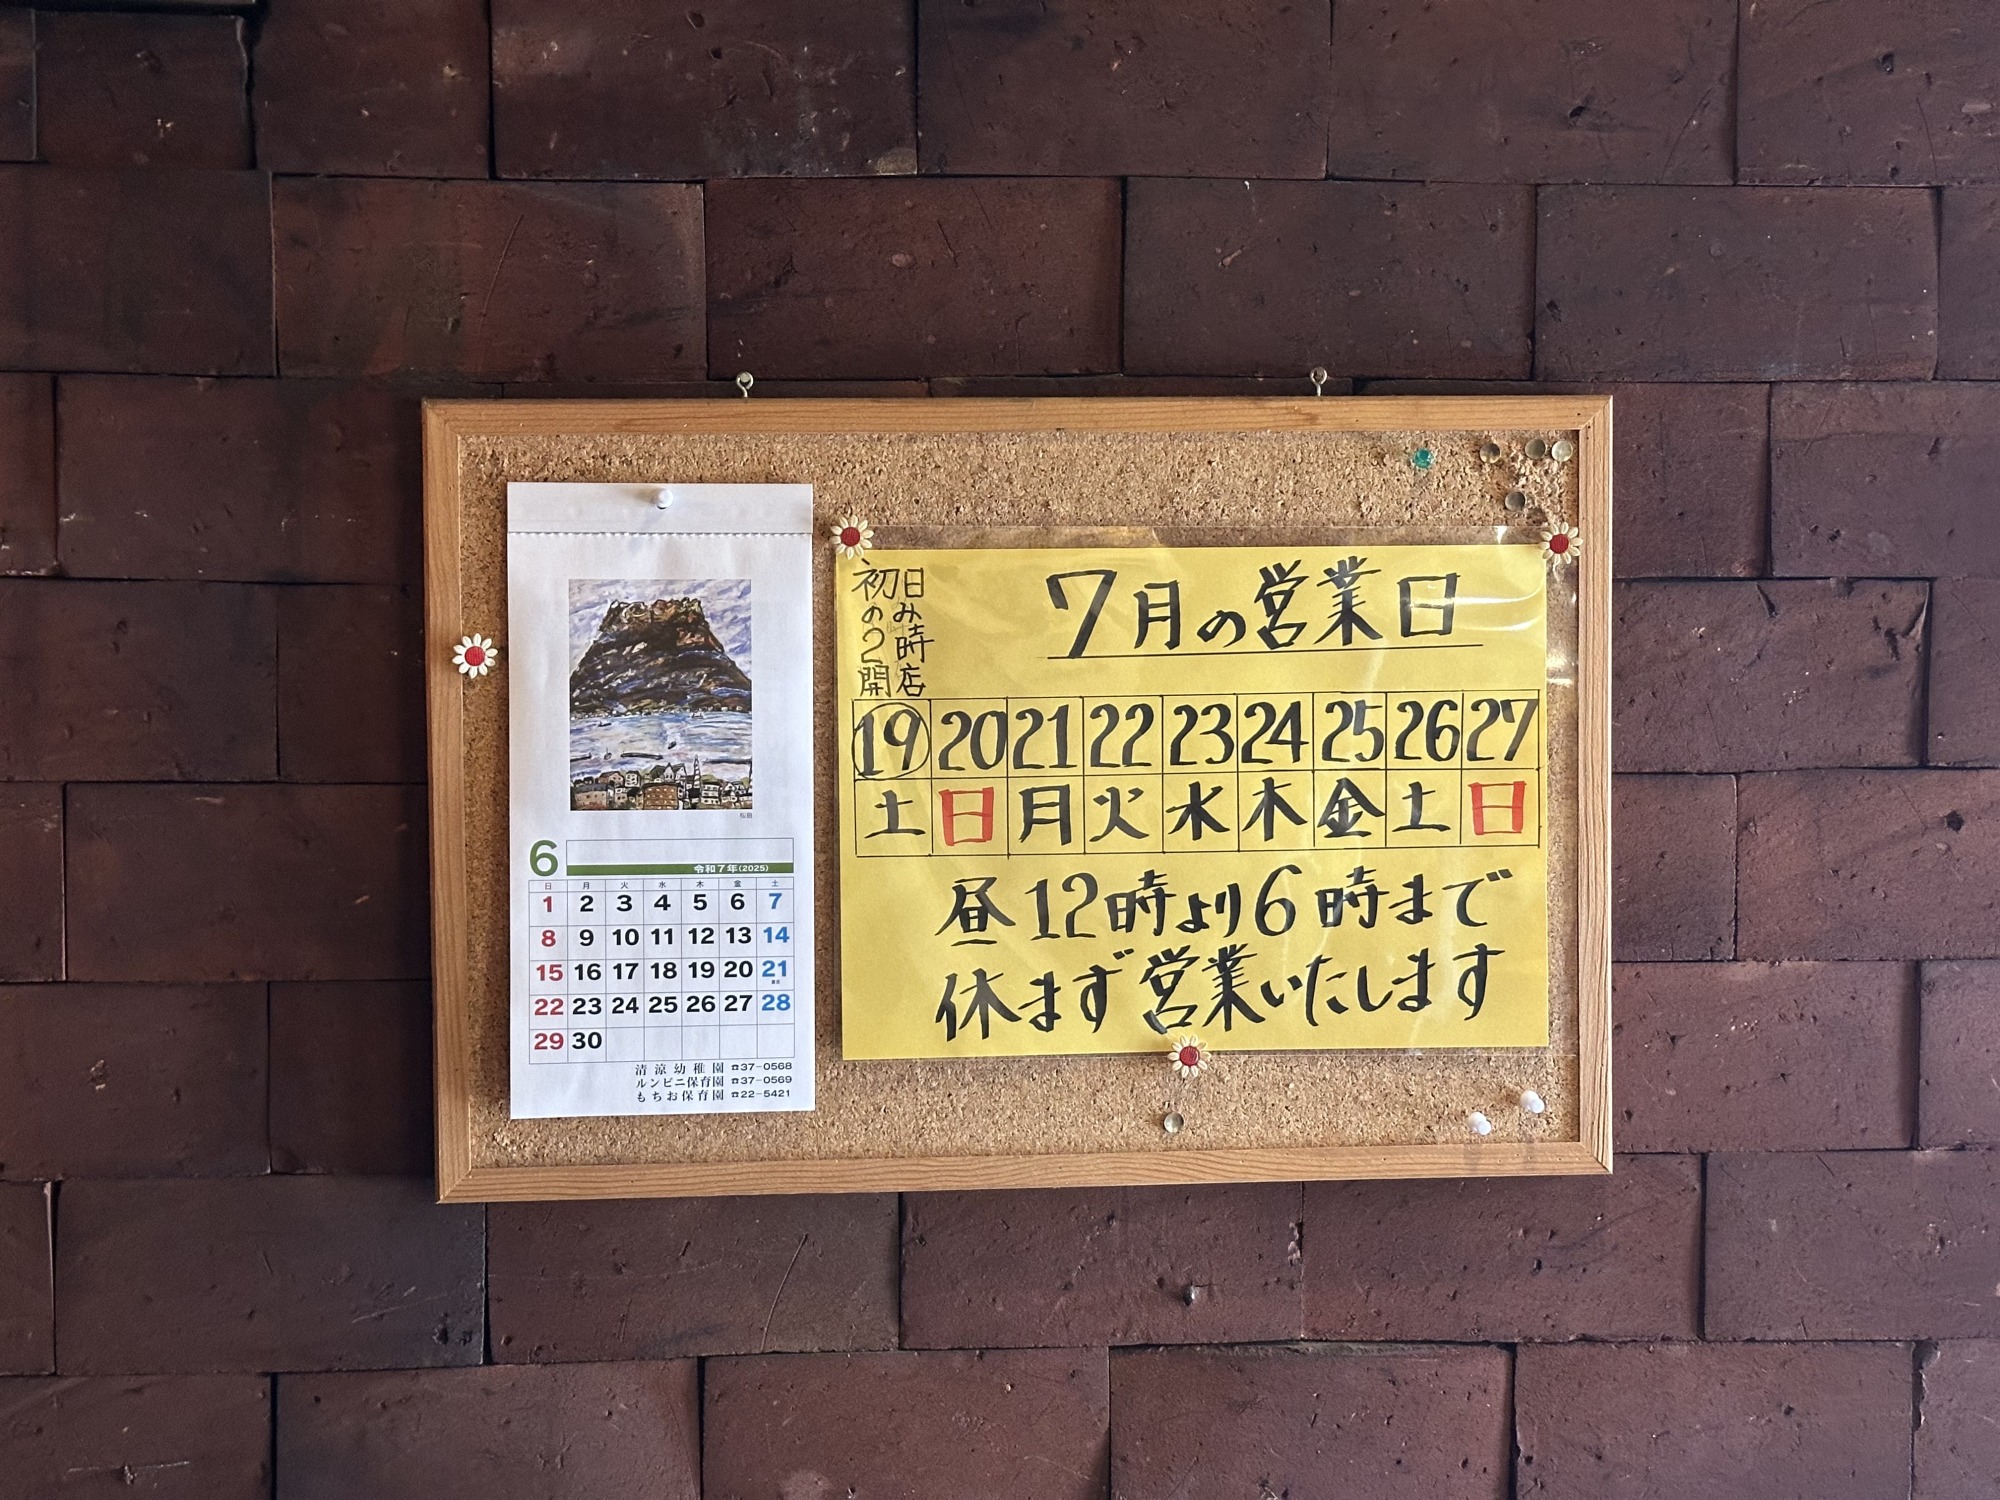 桜島
6
令和7年(2025)
日 月 火 水 木 金 土
1 2 3 4 5 6 7
8 9 10 11 12 13 14
15 16 17 18 19 20 21
22 23 24 25 26 27 28
29 30
清涼幼稚園 ☎37-0568
ルンビニ保育園 ☎37-0569
もちお保育園 ☎22-5421
初日
のみ
2時
開店
7月の営業日
19 20 21 22 23 24 25 26 27
土 日 月 火 水 木 金 土 日
昼12時より6時まで
休まず営業いたします